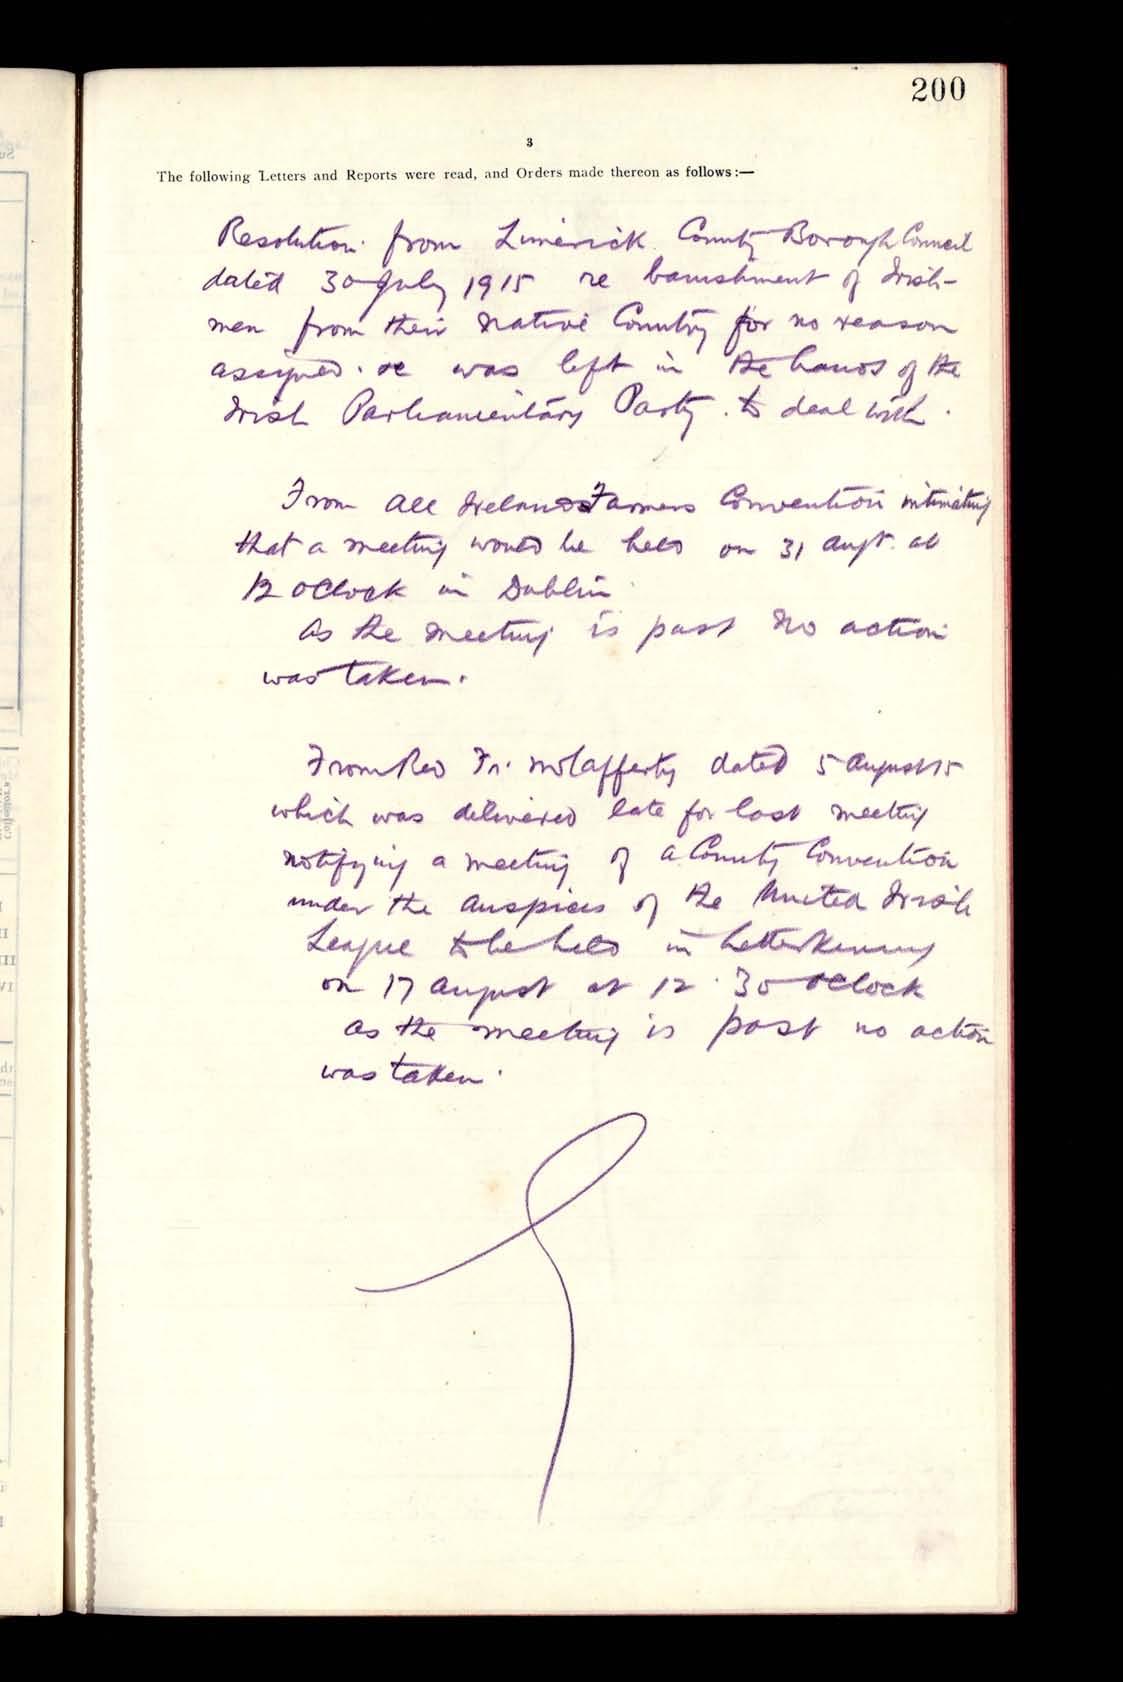 200
3
The following Letters and Reports were read, and Orders made thereon as follows:—
Resolution from Limerick County Borough Council
dated 30 July 1915 re banishment of Irish-
men from their native Country for no reason
assigned. was left in the hands of the
Irish Parliamentary Party. to deal with.
From All Ireland Farmers Convention intimating
that a meeting would be held on 31 Augt. at
12 oClock in Dublin
As the meeting is past no action
was taken.
From Rev Fr. McCafferty dated 5 August 15
which was delivered late for last meeting
notifying a meeting of a County Convention
under the auspices of the United Irish
League to be held in Letterkenny
on 17 August at 12.30 oClock
as the meeting is past no action
was taken.